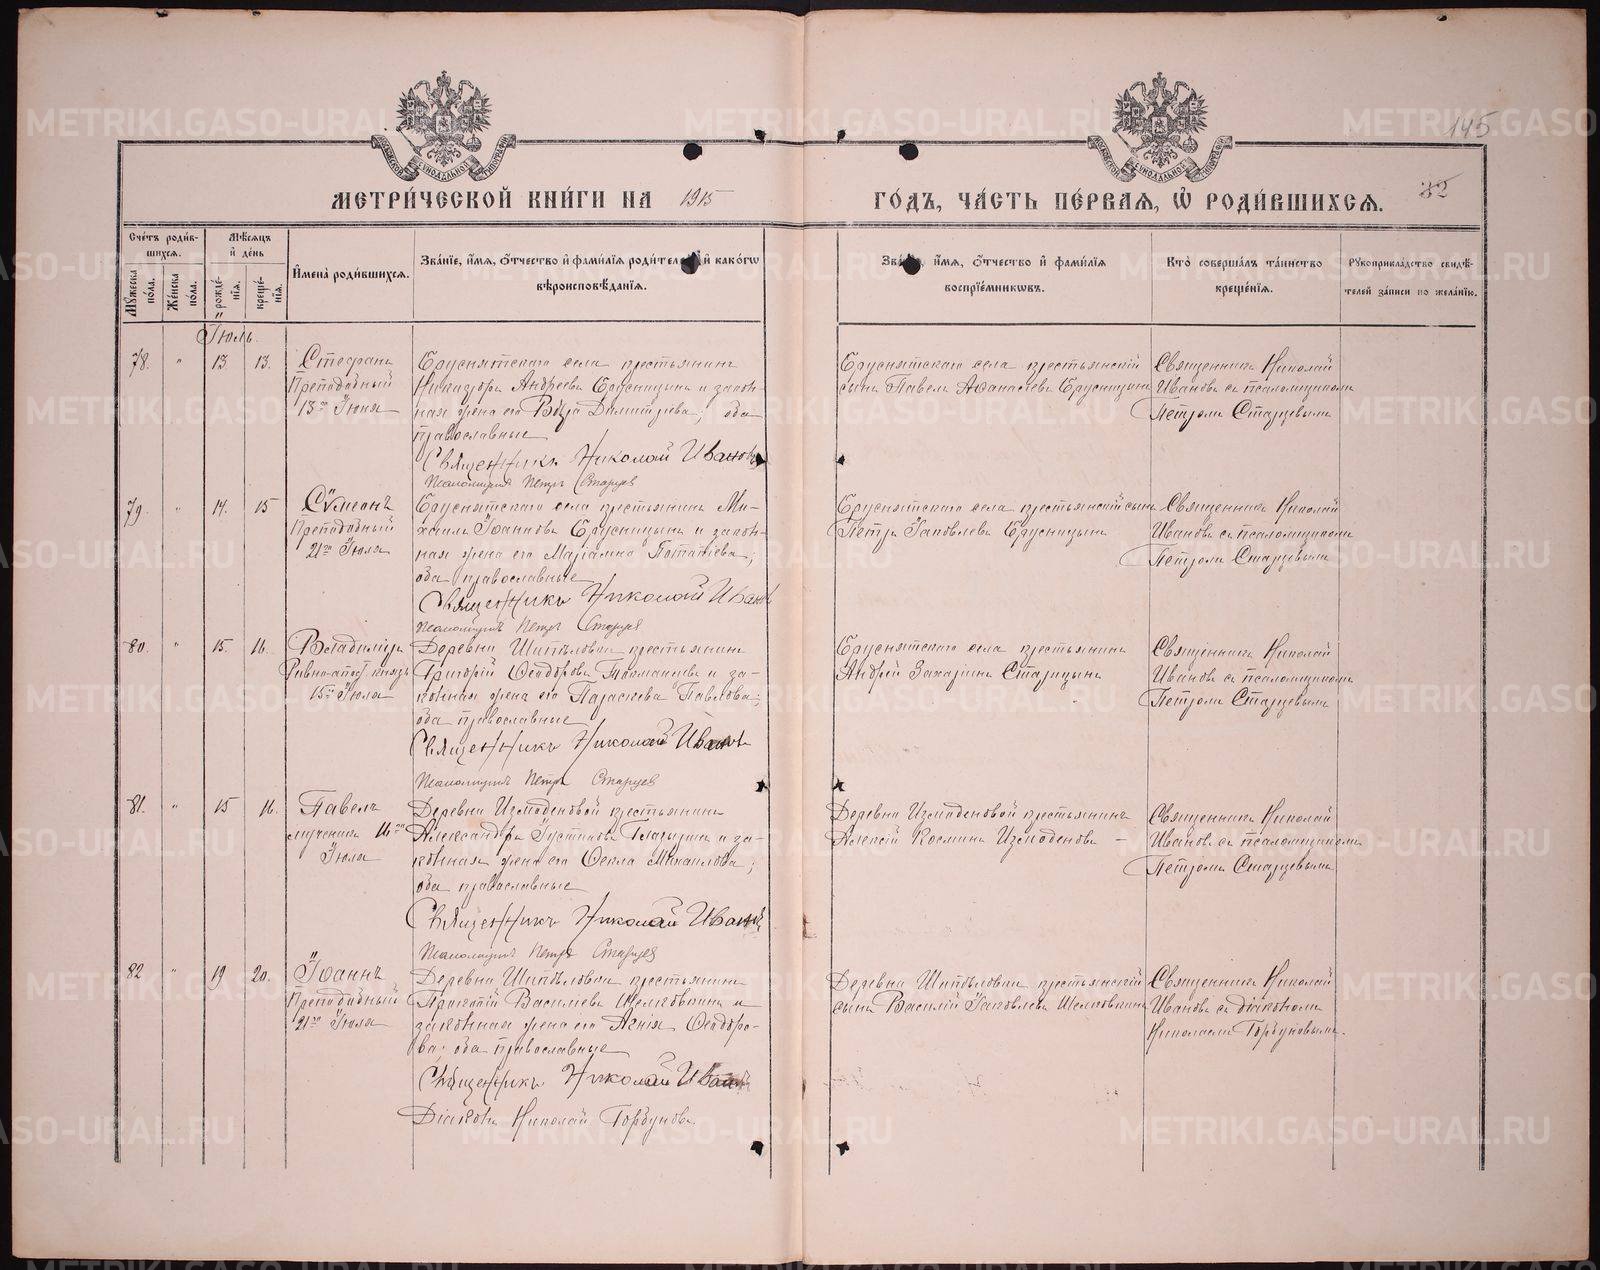 145
МЕТРИ́ЧЕСКОЙ КНИ́ГИ НА 1915
ГО́ДЪ, ЧА́СТЬ ПЕ́РВАЯ, Ѡ҆ РОДИ́ВШИХСЯ.
32
Сче́тъ роди́в-
шихся.
Мꙋ́жеска по́ла.
Же́нска по́ла.
Мѣ́сяцъ
и҆ де́нь
рожде́-
нїя.
креще́-
нїя.
И҆мена̀ роди́вшихся.
Зва́нїе, и҆́мя, ѻ҆́тчество и҆ фами́лїя роди́телей, и҆ како́гѡ
вѣроисповѣ́данїя.
и҆́мя, ѻ҆́тчество и҆ фами́лїя
воспрїе́мникѡвъ.
Кто̀ соверша́лъ та́инство
креще́нїя.
Рꙋкоприкла́дство свидѣ́-
телей за́писи по жела́нїю.
Іюль.
78. " 13. 13.
Стефанъ
Преподобный
13го Іюля
Бруснятскаго села крестьянинъ
Никифоръ Андреевъ Брусницынъ и закон-
ная жена его Вѣра Димитріева; оба
православные
Священникъ Николай Ивановъ
Псаломщикъ Петръ Старцевъ
Бруснятскаго села крестьянскій
сынъ Павелъ Аѳанасьевъ Брусницынъ
Священникъ Николай
Ивановъ съ псаломщикомъ
Петромъ Старцевымъ
79. " 14. 15
Сѵмеонъ
Преподобный
21го Іюля
Бруснятскаго села крестьянинъ Ми-
хаилъ Іоанновъ Брусницынъ и закон-
ная жена его Маріамна Потапіева;
оба православные
Священникъ Николай Ивановъ
Псаломщикъ Петръ Старцевъ
Бруснятскаго села крестьянскій сынъ
Петръ Іаковлевъ Брусницынъ
Священникъ Николай
Ивановъ съ псаломщикомъ
Петромъ Старцевымъ
80. " 15. 16.
Владиміръ
Равноапост князь
15го Іюля
Деревни Шипѣловки крестьянинъ
Григорій Ѳеодоровъ и за-
конная жена его Параскева Павлова;
оба православные
Священникъ Николай Ивановъ
Псаломщикъ Петръ Старцевъ
Бруснятскаго села крестьянинъ
Андрей Захаринъ Старицынъ
Священникъ Николай
Ивановъ съ псаломщикомъ
Петромъ Старцевымъ
81. " 15 16.
Павелъ
мученикъ 16го
Іюля
Деревни Измоденовой крестьянинъ
Александръ Іустиновъ Глазыринъ и за-
конная жена его Ѳекла Михаилова;
оба православные
Священникъ Николай Ивановъ
Псаломщикъ Петръ Старцевъ
Деревни Измоденовой крестьянинъ
Алексій Косминъ Измоденовъ –
Священникъ Николай
Ивановъ съ псаломщикомъ
Петромъ Старцевымъ
82 " 19 20.
Іоаннъ
Преподобный
21го Іюля
Деревни Шипѣловки крестьянинъ
Василіевъ Шелковкинъ и
законная жена его Агнія Ѳеодоро-
ва; оба православные
Священникъ Николай Ивановъ
Діаконъ Николай Горбуновъ.
Деревни Шипѣловки крестьянскій
сынъ Василій Іаковлевъ Шелковкинъ
Священникъ Николай
Ивановъ съ діакономъ
Николаемъ Горбуновымъ.
METRIKI.GASO-URAL.RU